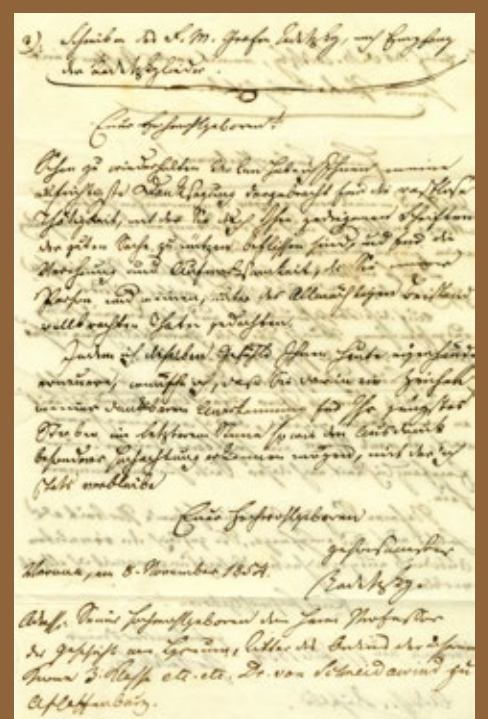 2). Schreiben des F. M. Grafen Radetzky, nach Empfang
der Radetzkylieder.
Euer Hochwohlgeboren!
Schon zu wiederholten Malen habe Ihnen meine
aufrichtigste Danksagung dargebracht für die rastlose
Thätigkeit, mit der Sie durch Ihre gediegenen Schriften
der guten Sache zu nützen beflissen sind, und für die
Verehrung und Aufmerksamkeit, der Sie meiner
Person und meinen, unter des Allmächtigen Beistand
vollbrachten Thaten gedachten.
Indem ich dieselben Gefühle Ihnen heute eigenhändig
erneuere, wünsche ich, dass Sie darin ein Zeichen
meiner dankbaren Anerkennung für Ihr jüngstes
Streben im letzterem Sinne sowie den Ausdruck
besonderer Hochachtung erkennen mögen, mit der ich
stets verbleibe
Euer Hochwohlgeboren
gehorsamster
Verona, am 8. November 1854.
Radetzky.
Adresse. Seiner Hochwohlgeboren dem Herrn Professor
der Geschichte von Ritter des Ordens der eisernen
Krone 3. Klasse etc. etc. Dr. von Schneidawind zu
Aschaffenburg.